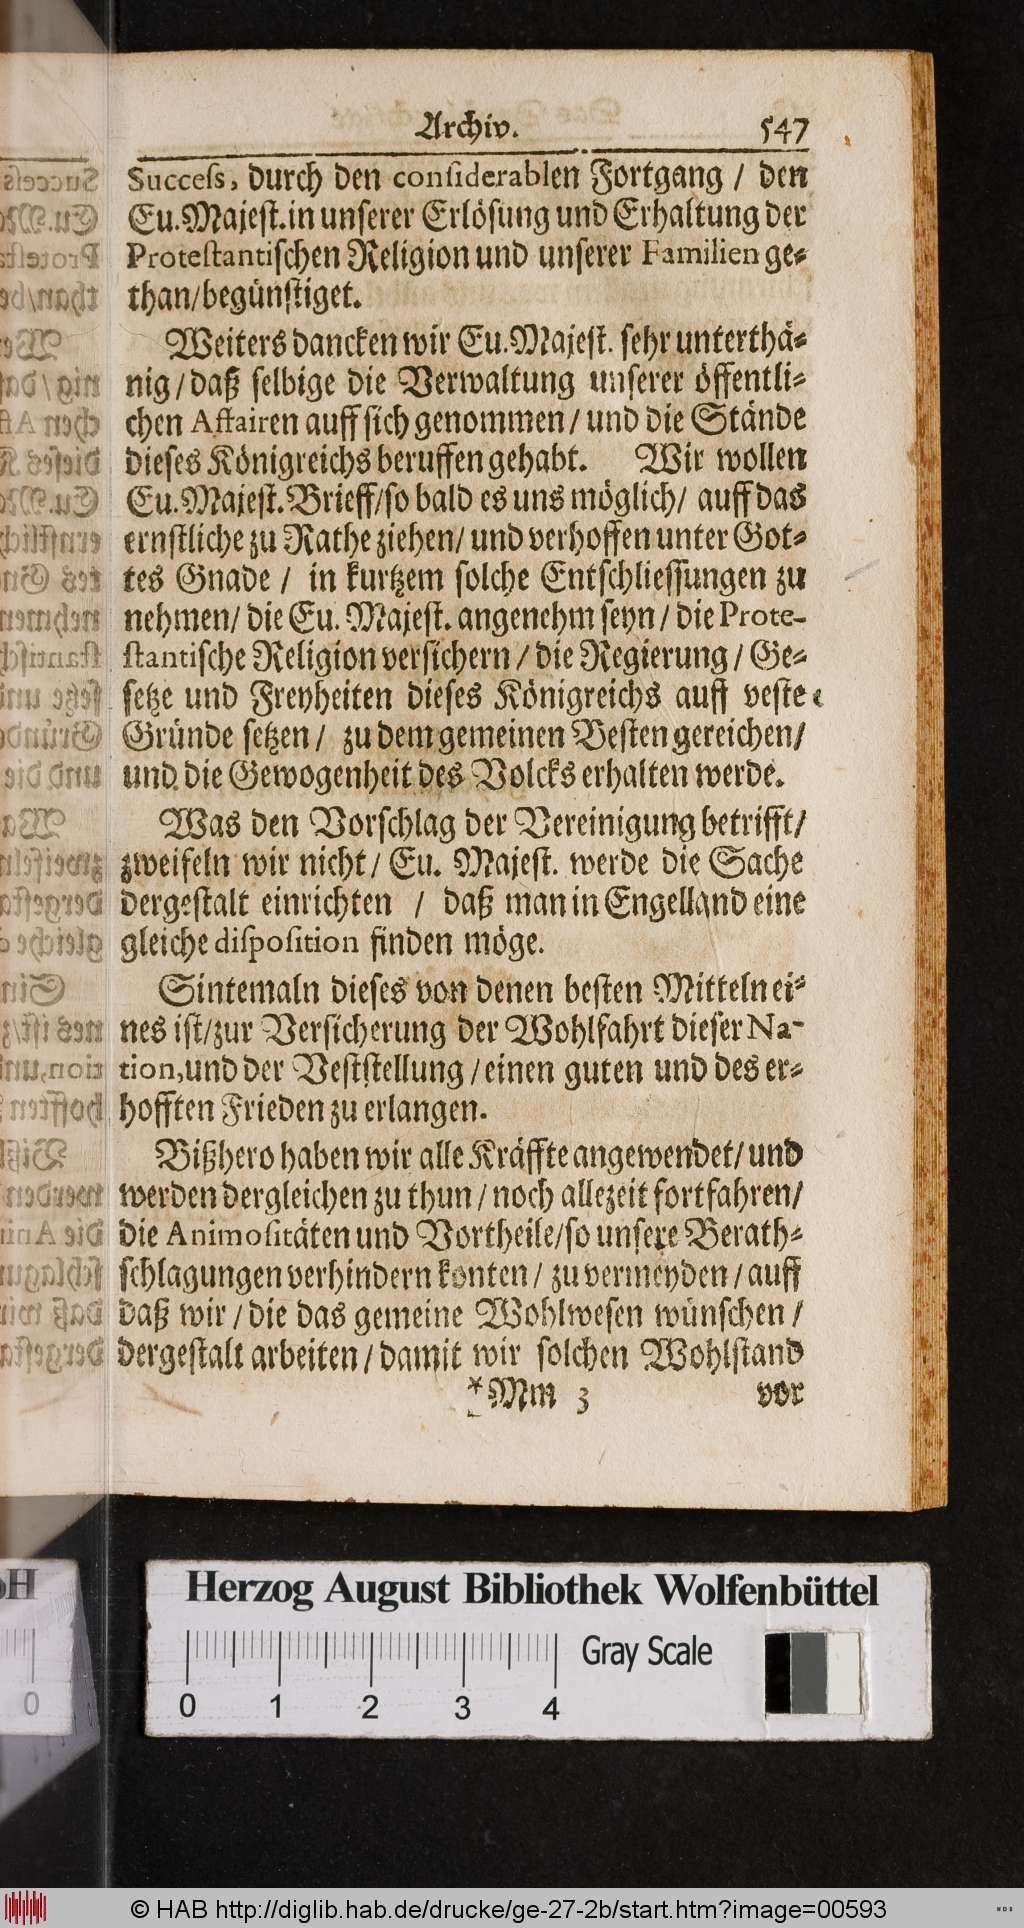 Archiv. 547
Success, durch den considerablen Fortgang / den
Eu. Majest. in unserer Erlösung und Erhaltung der
Protestantischen Religion und unserer Familien ge-
than/begünstiget.
Weiters dancken wir Eu. Majest. sehr unterthä-
nig / daß selbige die Verwaltung unserer öffentli-
chen Affairen auff sich genommen / und die Stände
dieses Königreichs beruffen gehabt. Wir wollen
Eu. Majest. Brieff/so bald es uns möglich/ auff das
ernstliche zu Rathe ziehen/ und verhoffen unter Got-
tes Gnade / in kurtzem solche Entschliessungen zu
nehmen/ die Eu. Majest. angenehm seyn / die Prote-
stantische Religion versichern / die Regierung / Ge-
setze und Freyheiten dieses Königreichs auff veste
Gründe setzen / zu dem gemeinen Besten gereichen/
und die Gewogenheit des Volcks erhalten werde.
Was den Vorschlag der Vereinigung betrifft/
zweifeln wir nicht / Eu. Majest. werde die Sache
dergestalt einrichten / daß man in Engelland eine
gleiche disposition finden möge.
Sintemaln dieses von denen besten Mitteln ei-
nes ist/zur Versicherung der Wohlfahrt dieser Na-
tion, und der Veststellung / einen guten und des er-
hofften Frieden zu erlangen.
Bißhero haben wir alle Kräffte angewendet/ und
werden dergleichen zu thun / noch allezeit fortfahren/
die Animositäten und Vortheile/so unsere Berath-
schlagungen verhindern konten / zu vermeyden / auff
daß wir / die das gemeine Wohlwesen wünschen /
dergestalt arbeiten / damit wir solchen Wohlstand
*Mm 3 vor
Herzog August Bibliothek Wolfenbüttel
Gray Scale
0 1 2 3 4
0
© HAB http://diglib.hab.de/drucke/ge-27-2b/start.htm?image=00593